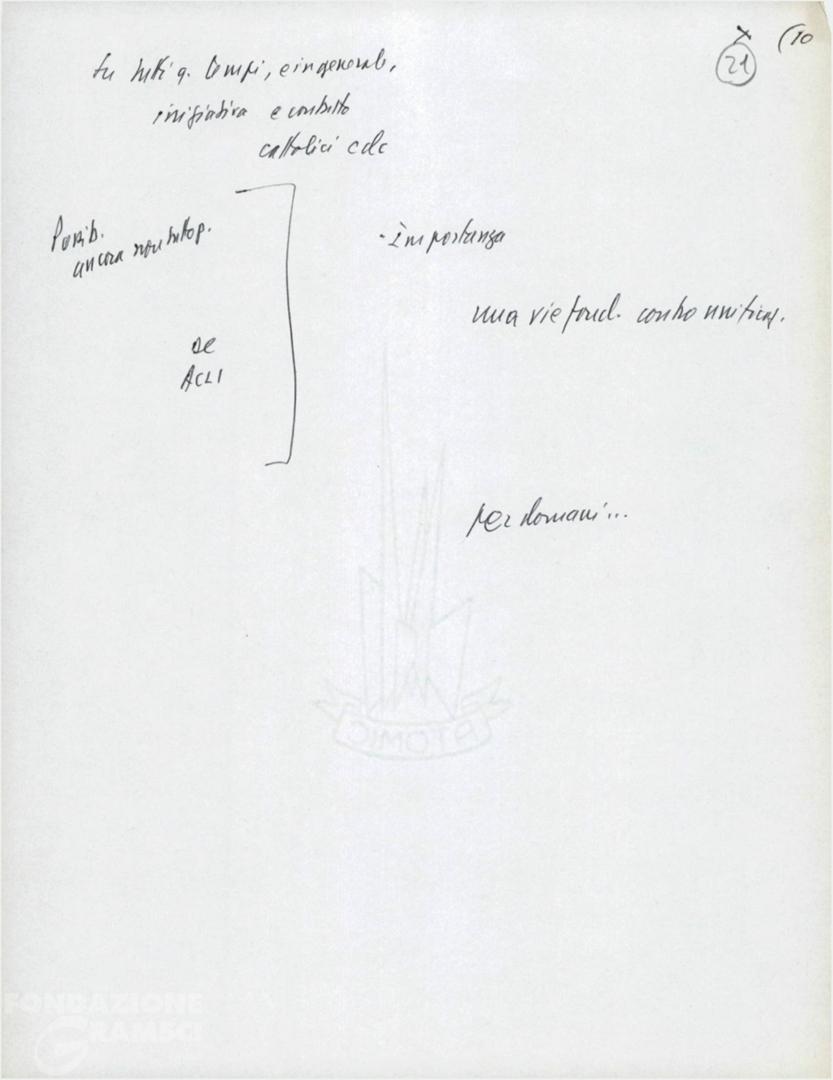 (10
21
su tutti q. campi, e in generale,
iniziativa e contatto
cattolici e dc
Possib.
ancora non tutto p.
DC
ACLI
- importanza
una vie fond. contro
per domani...
ATOMIC
FONDAZIONE
GRAMSCI